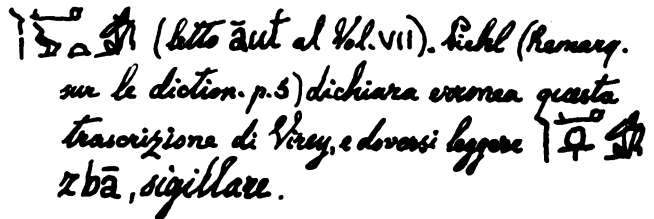 (letto āut al Vol. VII). Piehl (Remarq.
sur le diction. p. 5) dichiara erronea questa
trascrizione di Virey, e doversi leggere
zbā, sigillare.